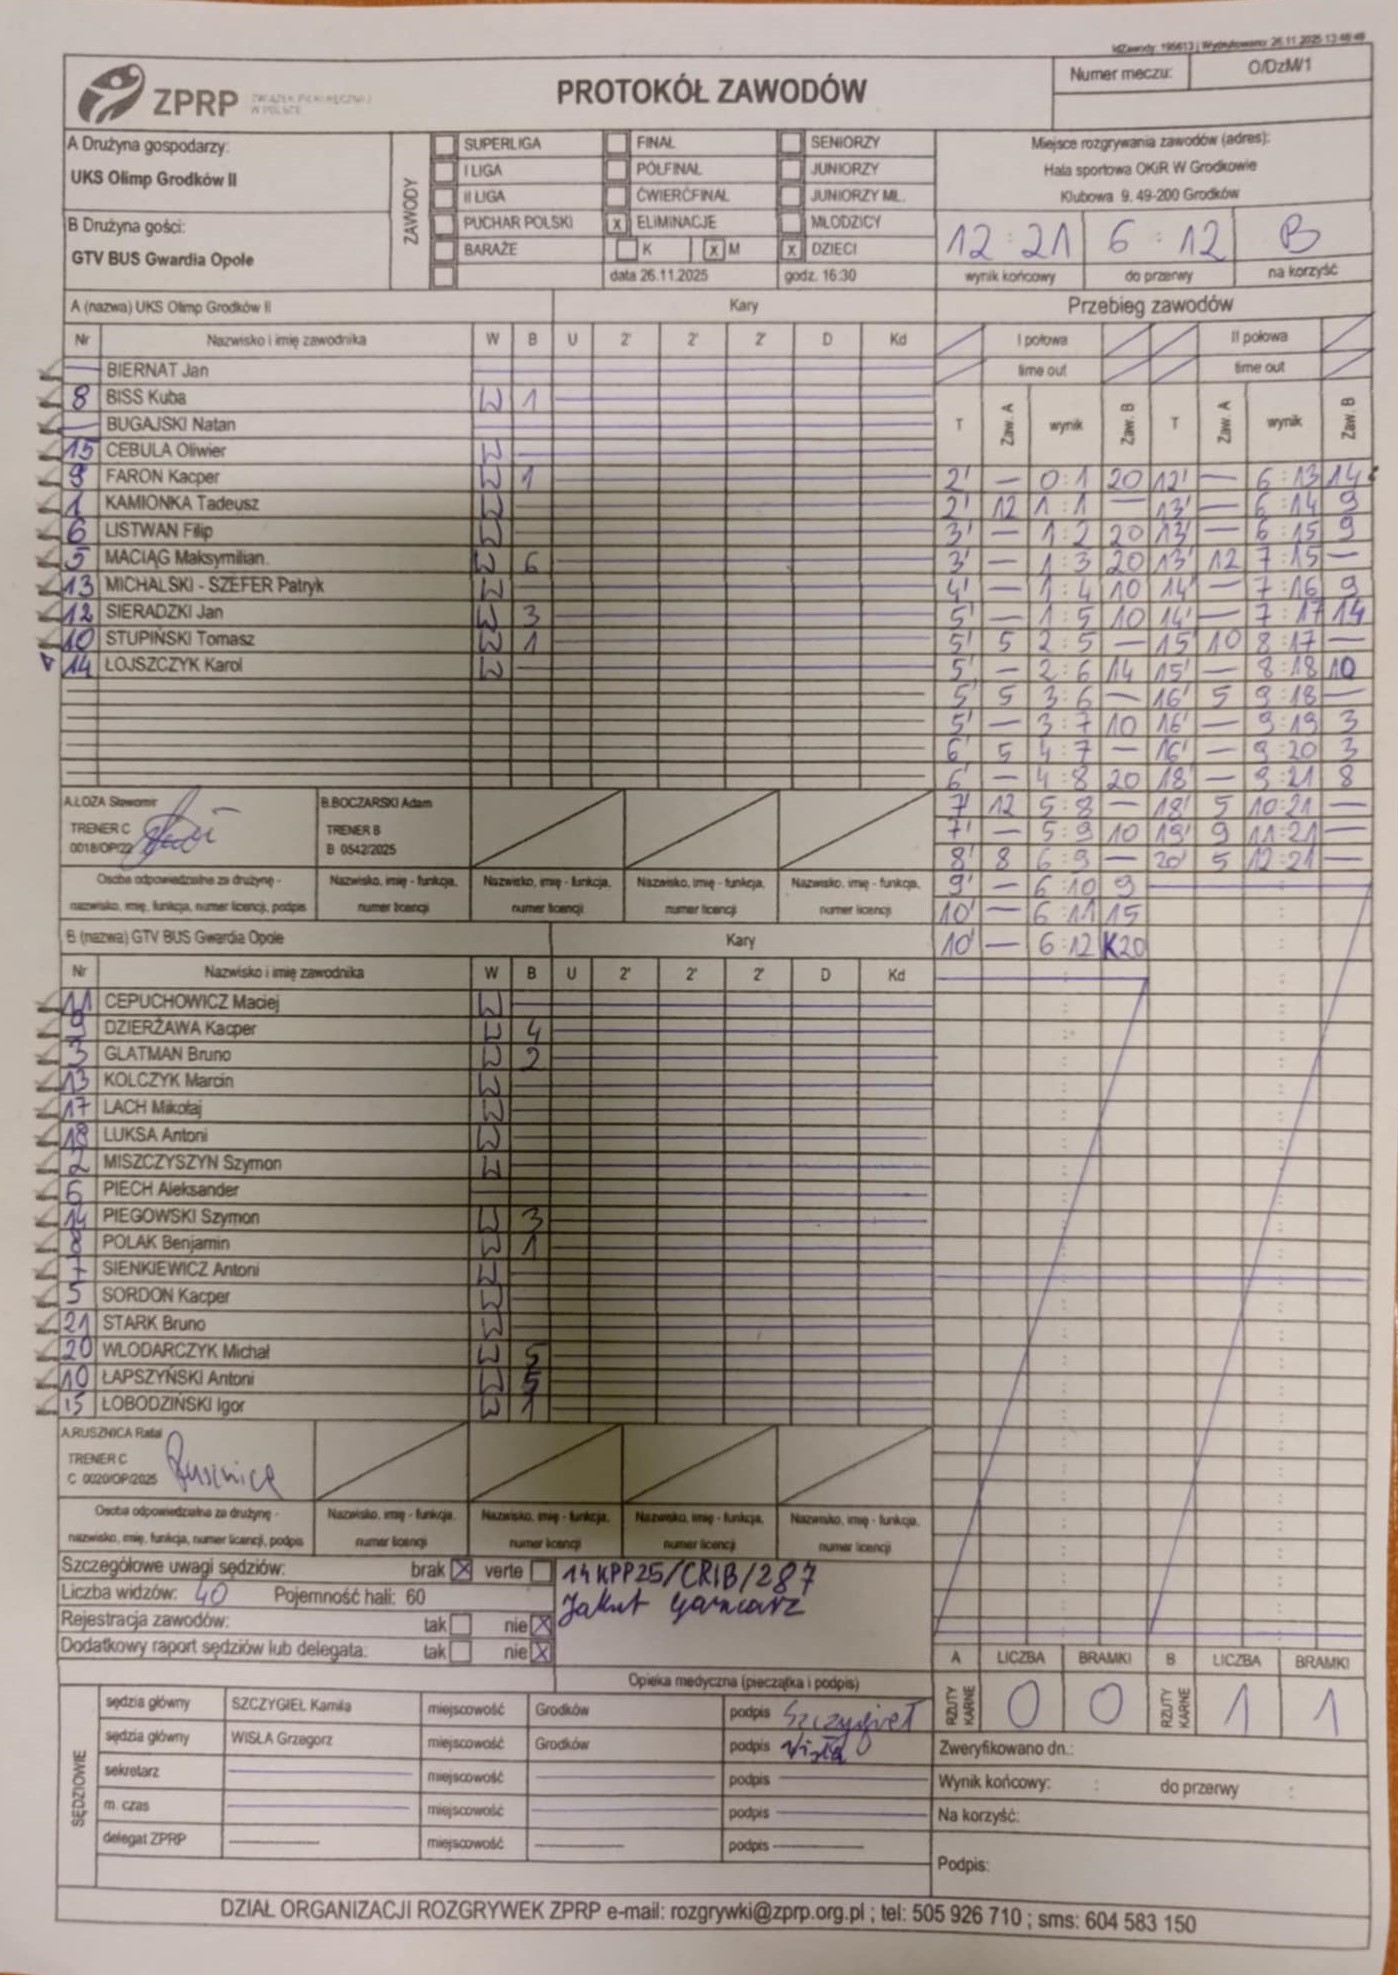 IdZawody: 195613 | Wydrukowano: 26.11.2025 13:48:49
ZPRP
ZWIĄZEK PIŁKI RĘCZNEJ
W POLSCE
PROTOKÓŁ ZAWODÓW
Numer meczu: O/DzM/1
A Drużyna gospodarzy:
UKS Olimp Grodków II
B Drużyna gości:
GTV BUS Gwardia Opole
ZAWODY
SUPERLIGA FINAŁ SENIORZY
I LIGA PÓŁFINAŁ JUNIORZY
II LIGA ĆWIERĆFINAŁ JUNIORZY MŁ.
PUCHAR POLSKI x ELIMINACJE MŁODZICY
BARAŻE K x M x DZIECI
data 26.11.2025 godz. 16:30
Miejsce rozgrywania zawodów (adres):
Hala sportowa OKiR W Grodkowie
Klubowa 9. 49-200 Grodków
12:21 6:12 B
wynik końcowy do przerwy na korzyść
A (nazwa) UKS Olimp Grodków II Kary
Nr Nazwisko i imię zawodnika W B U 2' 2' 2' D Kd
— BIERNAT Jan
8 BISS Kuba W 1
— BUGAJSKI Natan
15 CEBULA Oliwier W
9 FARON Kacper W 1
1 KAMIONKA Tadeusz W
6 LISTWAN Filip W
5 MACIĄG Maksymilian W 6
13 MICHALSKI - SZEFER Patryk W
12 SIERADZKI Jan W 3
10 STUPIŃSKI Tomasz W 1
14 ŁOJSZCZYK Karol W
A.ŁOZA Sławomir
TRENER C
0018/OP/22
B.BOCZARSKI Adam
TRENER B
B 0542/2025
Osoba odpowiedzialna za drużynę -
nazwisko, imię, funkcja, numer licencji, podpis
Nazwisko, imię - funkcja, numer licencji
Nazwisko, imię - funkcja, numer licencji
Nazwisko, imię - funkcja, numer licencji
Nazwisko, imię - funkcja, numer licencji
B (nazwa) GTV BUS Gwardia Opole Kary
Nr Nazwisko i imię zawodnika W B U 2' 2' 2' D Kd
11 CEPUCHOWICZ Maciej W
9 DZIERŻAWA Kacper W 4
3 GLATMAN Bruno W 2
13 KOLCZYK Marcin W
17 LACH Mikołaj W
18 LUKSA Antoni W
2 MISZCZYSZYN Szymon W
6 PIECH Aleksander
14 PIEGOWSKI Szymon W 3
8 POLAK Benjamin W 1
7 SIENKIEWICZ Antoni W
5 SORDON Kacper W
21 STARK Bruno W
20 WŁODARCZYK Michał W 5
10 ŁAPSZYŃSKI Antoni W 5
15 ŁOBODZIŃSKI Igor W 1
A.RUSZNICA Rafał
TRENER C
C 0020/OP/2025
Rusznica
Osoba odpowiedzialna za drużynę -
nazwisko, imię, funkcja, numer licencji, podpis
Nazwisko, imię - funkcja, numer licencji
Nazwisko, imię - funkcja, numer licencji
Nazwisko, imię - funkcja, numer licencji
Nazwisko, imię - funkcja, numer licencji
Przebieg zawodów
I połowa II połowa
time out time out
T Zaw. A wynik Zaw. B T Zaw. A wynik Zaw. B
2' — 0:1 20 12' — 6:13 14
2' 12 1:1 — 13' — 6:14 9
3' — 1:2 20 13' — 6:15 9
3' — 1:3 20 13' 12 7:15 —
4' — 1:4 10 14' — 7:16 9
5' — 1:5 10 14' — 7:17 14
5' 5 2:5 — 15' 10 8:17 —
5' — 2:6 14 15' — 8:18 10
5' 5 3:6 — 16' 5 9:18 —
5' — 3:7 10 16' — 9:19 3
6' 5 4:7 — 16' — 9:20 3
6' — 4:8 20 18' — 9:21 8
7' 12 5:8 — 18' 5 10:21 —
7' — 5:9 10 19' 9 11:21 —
8' 8 6:9 — 20' 5 12:21 —
9' — 6:10 9
10' — 6:11 15
10' — 6:12 K20
Szczegółowe uwagi sędziów: brak X verte
Liczba widzów: 40 Pojemność hali: 60
Rejestracja zawodów: tak nie X
Dodatkowy raport sędziów lub delegata: tak nie X
14KPP25/CRIB/287
Jakub Garncarz
Opieka medyczna (pieczątka i podpis)
A LICZBA BRAMKI B LICZBA BRAMKI
RZUTY KARNE 0 0 RZUTY KARNE 1 1
SĘDZIOWIE
sędzia główny SZCZYGIEŁ Kamila miejscowość Grodków podpis Szczygieł
sędzia główny WISŁA Grzegorz miejscowość Grodków podpis Wisła
sekretarz miejscowość podpis
m. czas miejscowość podpis
delegat ZPRP miejscowość podpis
Zweryfikowano dn.:
Wynik końcowy: : do przerwy :
Na korzyść:
Podpis:
DZIAŁ ORGANIZACJI ROZGRYWEK ZPRP e-mail: rozgrywki@zprp.org.pl ; tel: 505 926 710 ; sms: 604 583 150